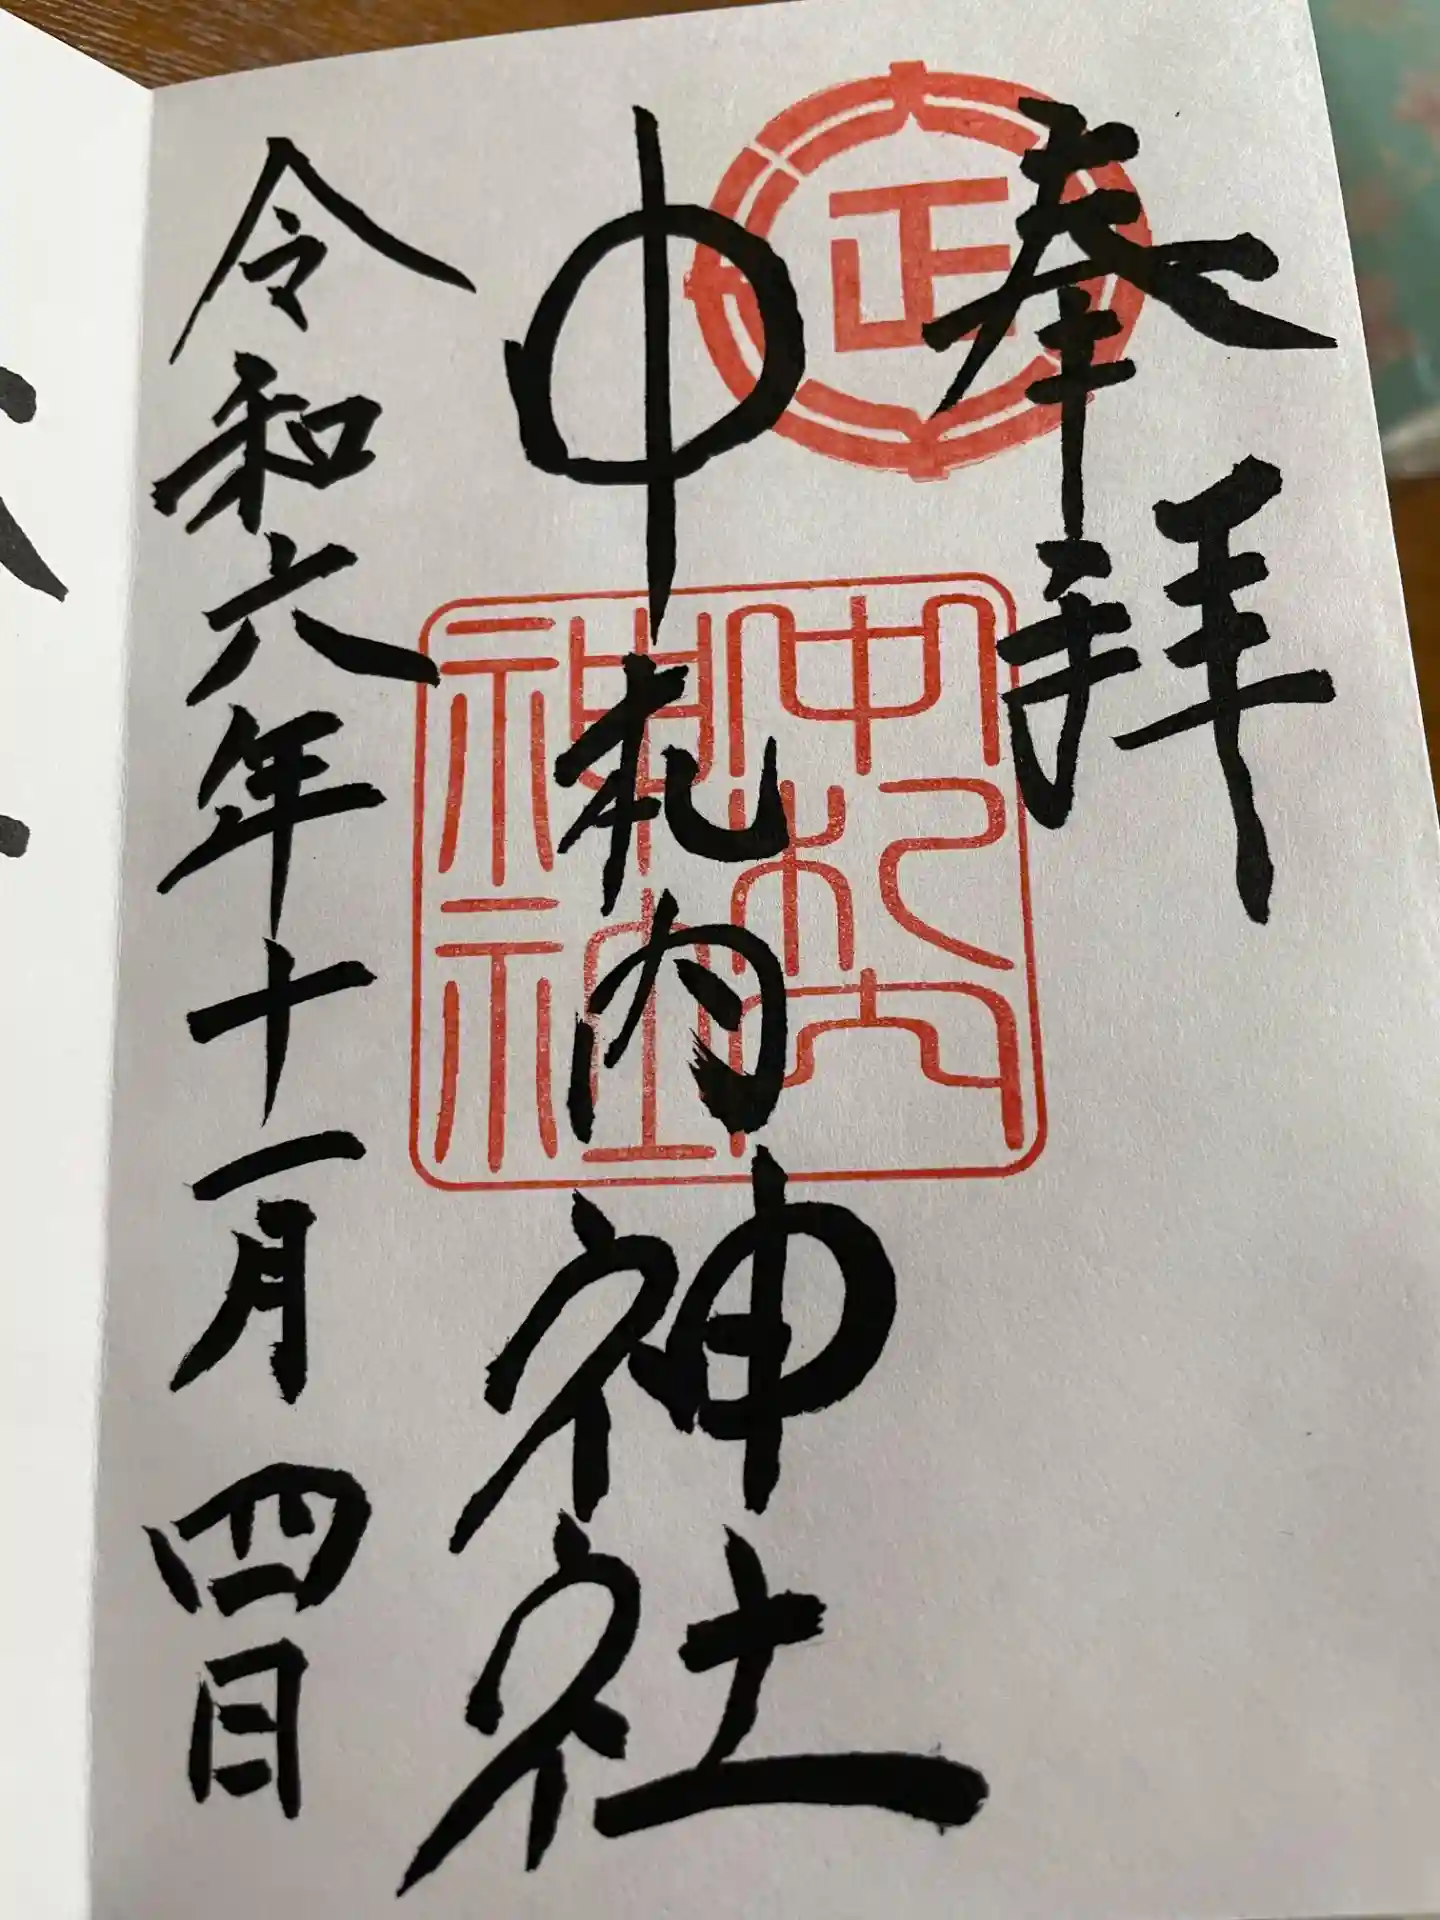 奉拝
正
中札内神社
中札内
神社
令和六年十一月四日